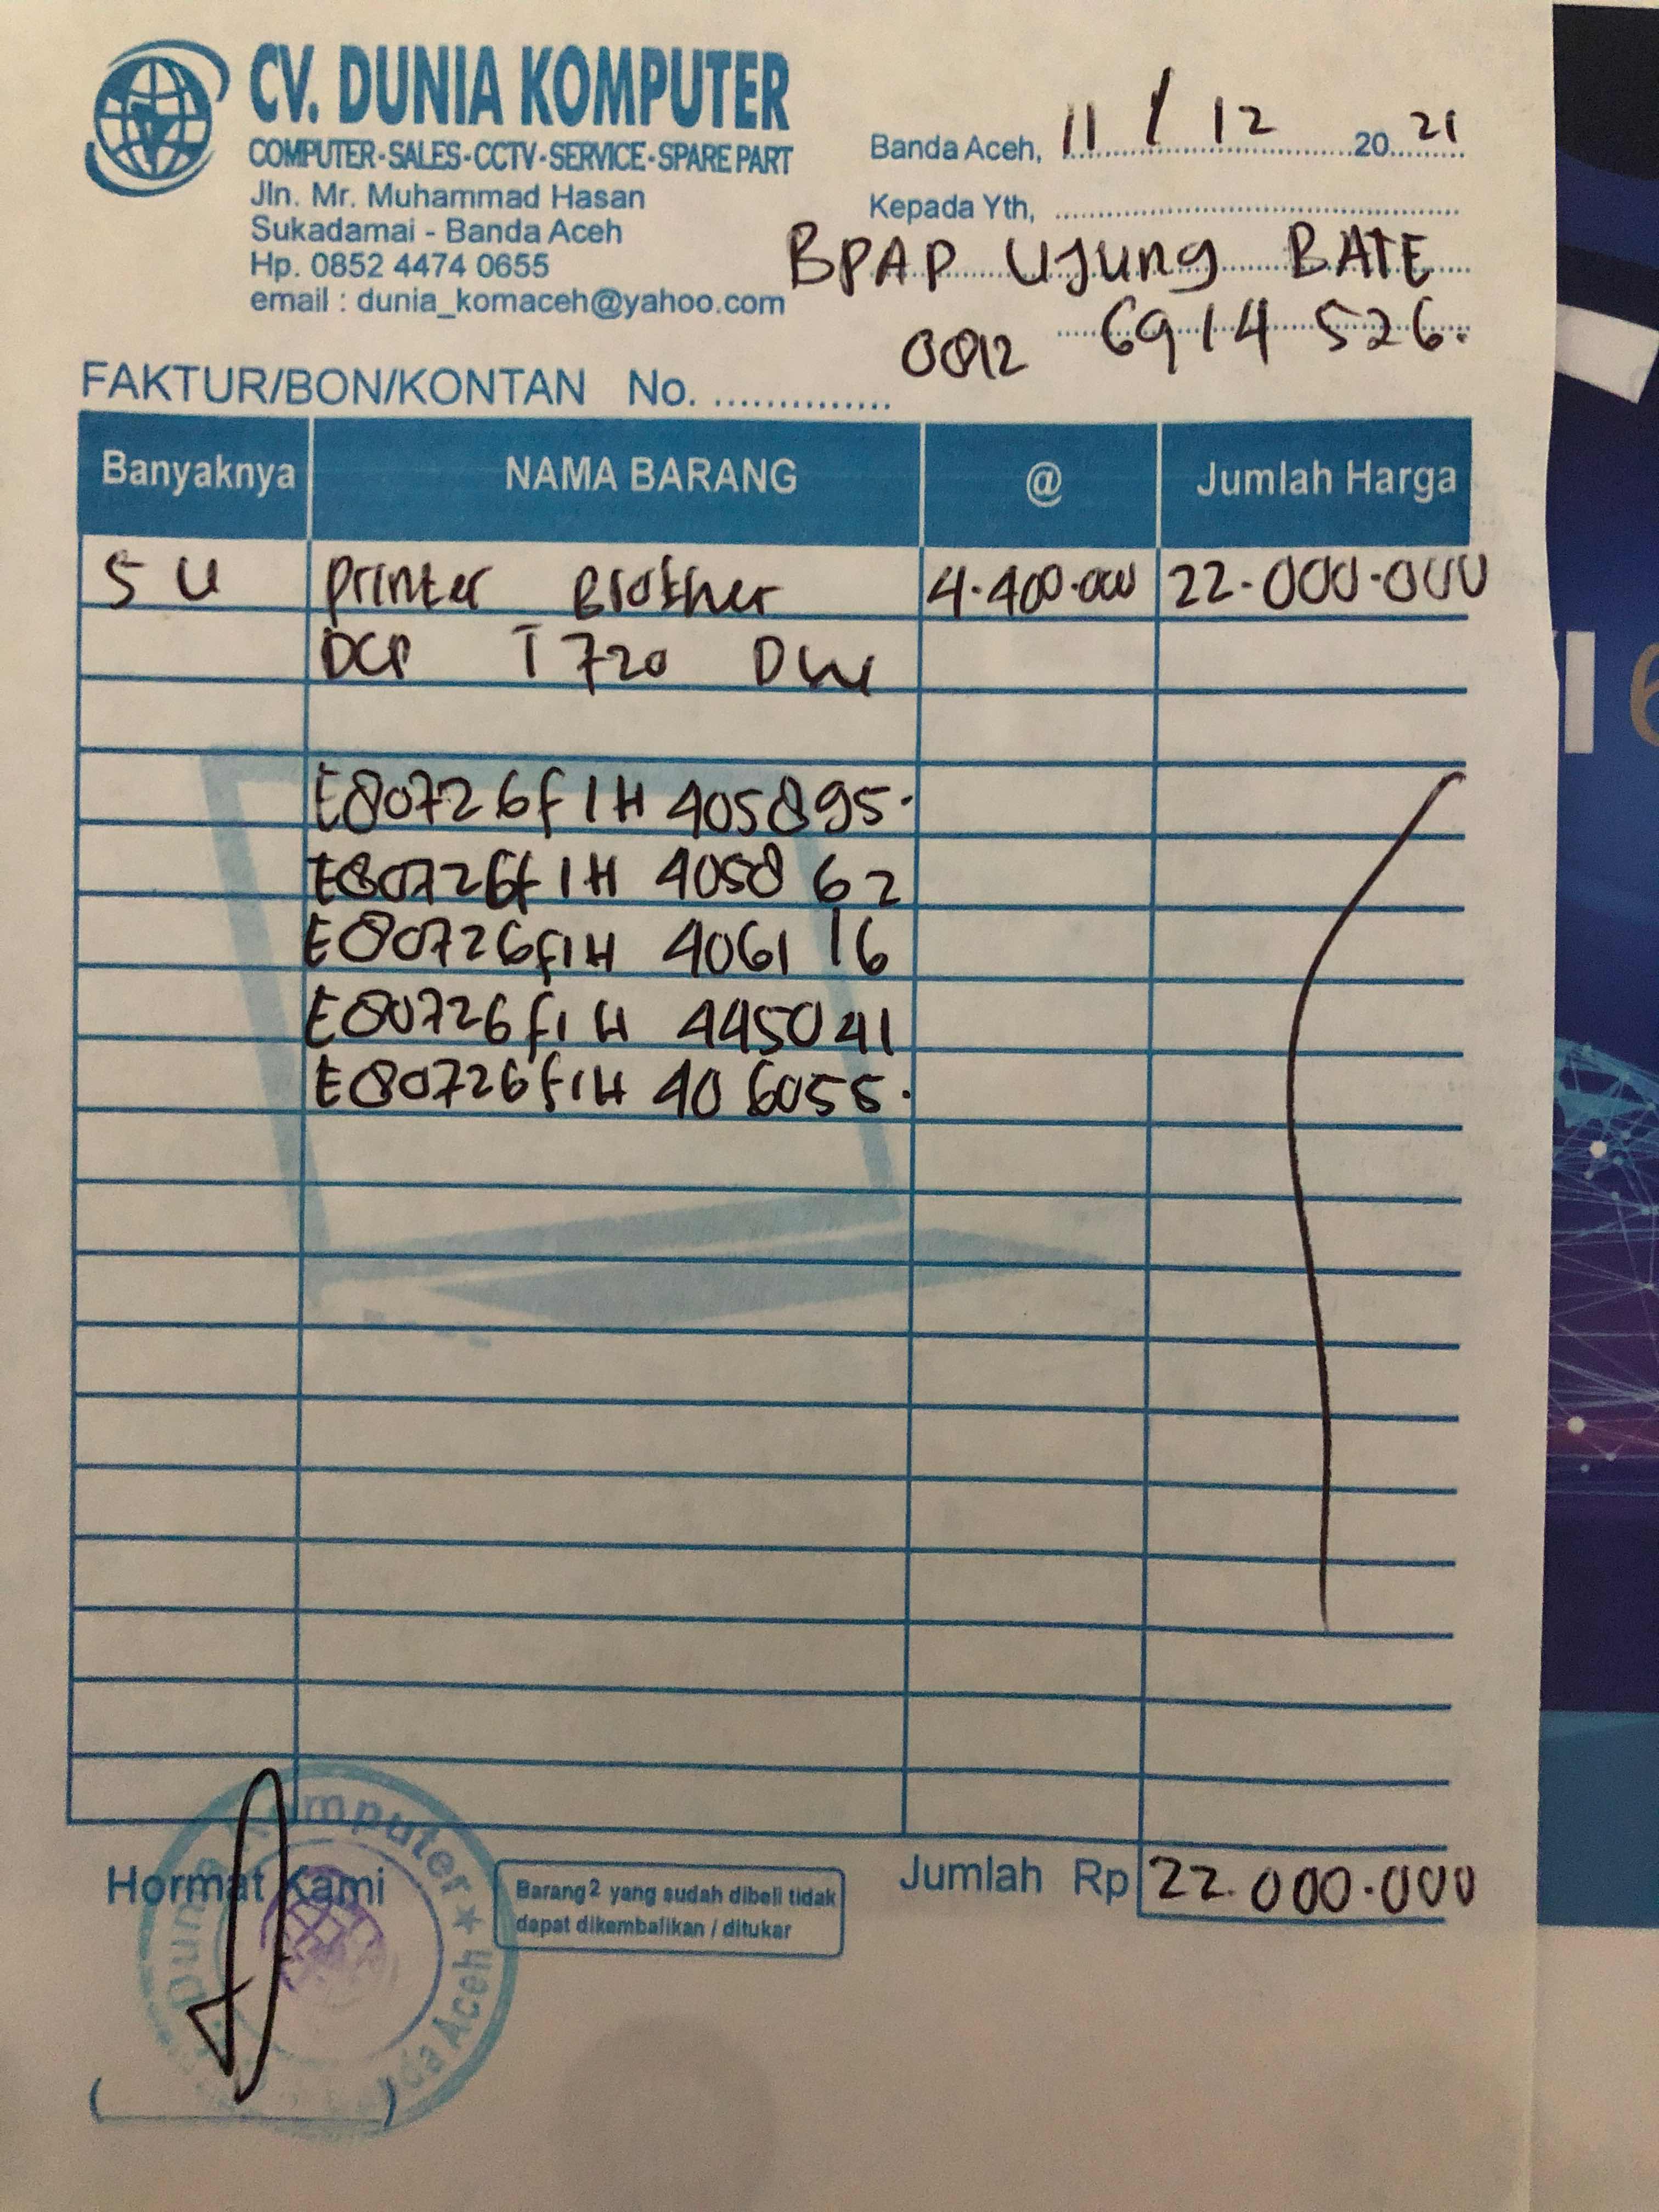 CV. DUNIA KOMPUTER
COMPUTER-SALES-CCTV-SERVICE-SPARE PART
Jln. Mr. Muhammad Hasan
Sukadamai - Banda Aceh
Hp. 0852 4474 0655
email : dunia_komaceh@yahoo.com
Banda Aceh, 11 / 12 2021
Kepada Yth,
BPAP Ujung BATE
0812 6914 526.
FAKTUR/BON/KONTAN No. ..............
Banyaknya NAMA BARANG @ Jumlah Harga
5 U Printer Brother 4.400.000 22.000.000
DCP T720 DW
E80726F1H 405895.
E80726F1H 405862
E80726F1H 406116
E80726F1H 445041
E80726F1H 406055.
Hormat Kami
Barang2 yang sudah dibeli tidak
dapat dikembalikan / ditukar
Jumlah Rp 22.000.000
Dunia Komputer
Banda Aceh